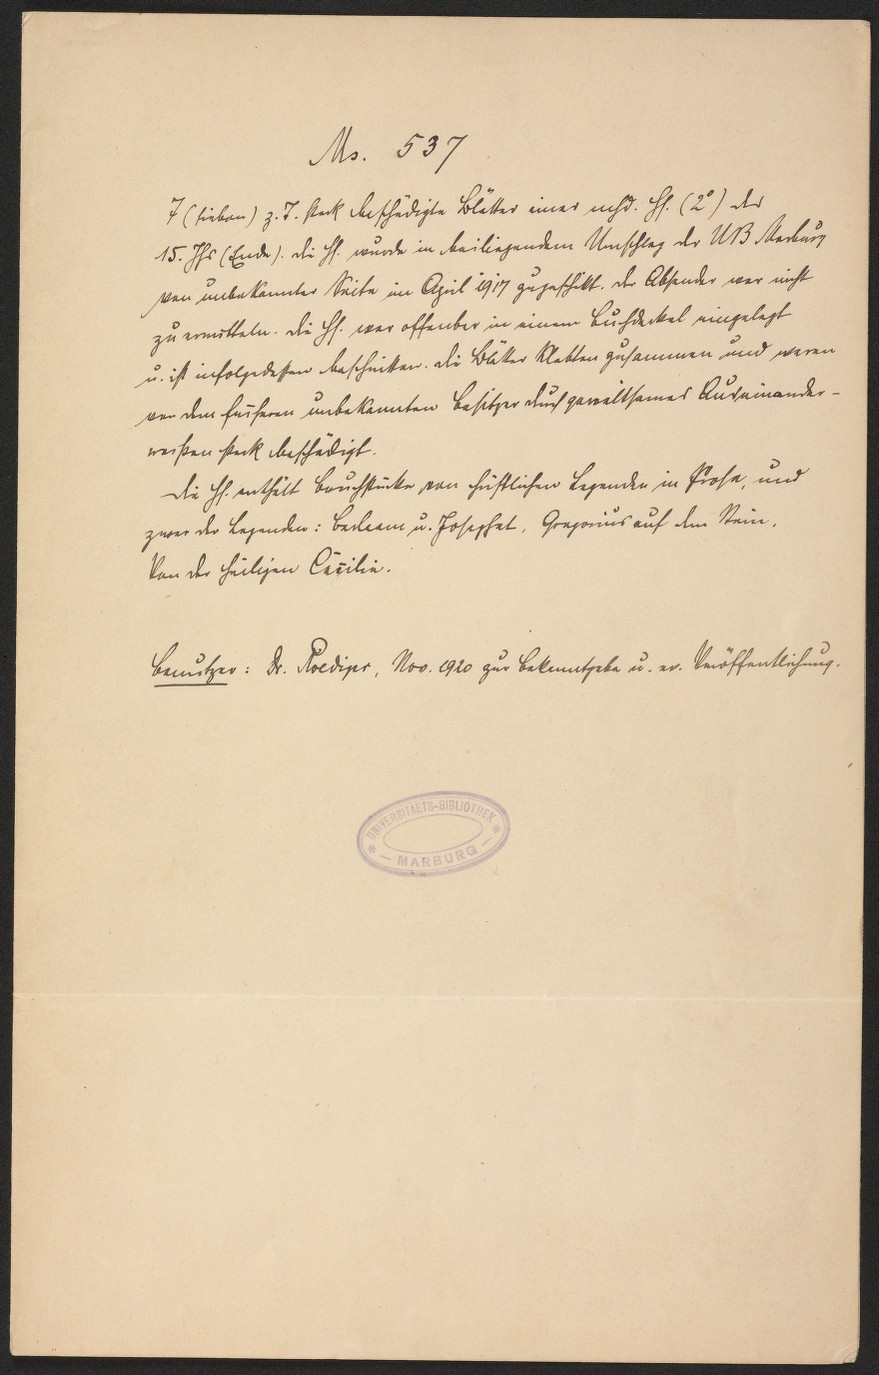 Ms. 537
7 (sieben) z. T. stark beschädigte Blätter einer mhd. Hs. (2°) des
15. Jhs (Ende). Die Hs. wurde in beiliegendem Umschlag der UB Marburg
von unbekannter Seite im April 1917 zugeschikt. Der Absender war nicht
zu ermitteln. Die Hs. war offenbar in einem Buchdeckel eingelegt
u. ist infolgedessen beschnitten. Die Blätter klebten zusammen und waren
von dem früheren unbekannten Besitzer durch gewaltsames Auseinander-
reißen stark beschädigt.
Die Hs. enthält Bruchstücke von christlichen Legenden in Prosa, und
zwar der Legenden: Barlaam u. Josephat, Gregorius auf dem Stein,
Von der heiligen Cäcilie.
Benutzer: Dr. Roediger, Nov. 1920 zur Bekanntgabe u. ev. Veröffentlichung.
UNIVERSITAETS-BIBLIOTHEK
* — MARBURG — *